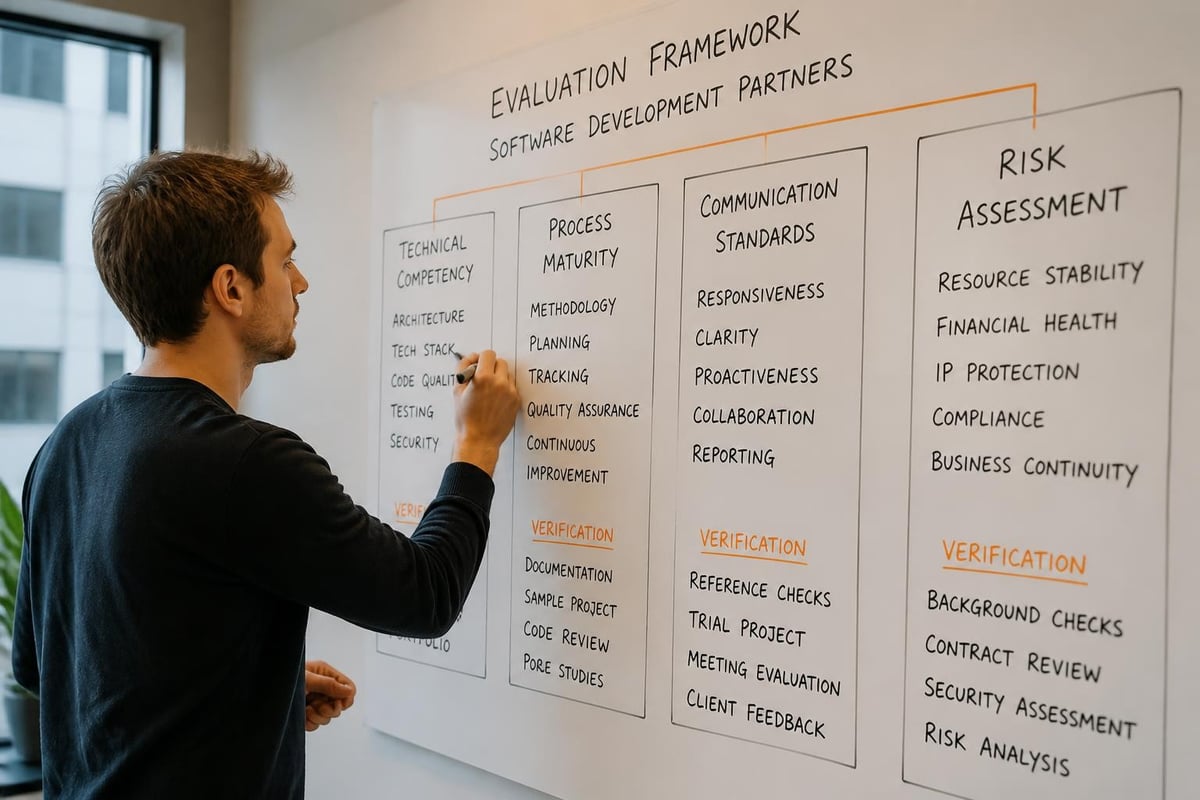 EVALUATION FRAMEWORK
SOFTWARE DEVELOPMENT PARTNERS
TECHNICAL
COMPETENCY
ARCHITECTURE
TECH STACK
CODE QUALIT
TESTING
SECURITY
VERIF
PORTFOLIO
PROCESS
MATURITY
METHODOLOGY
PLANNING
TRACKING
QUALITY ASSURANCE
CONTINUOUS
IMPROVEMENT
VERIFICATION
DOCUMENTATION
SAMPLE PROJECT
CODE REVIEW
PORE STUDIES
COMMUNICATION
STANDARDS
RESPONSIVENESS
CLARITY
PROACTIVENESS
COLLABORATION
REPORTING
VERIFICATION
REFERENCE CHECKS
TRIAL PROJECT
MEETING EVALUATION
CLIENT FEEDBACK
RISK
ASSESSMENT
RESOURCE STABILITY
FINANCIAL HEALTH
IP PROTECTION
COMPLIANCE
BUSINESS CONTINUITY
VERIFICATION
BACKGROUND CHECKS
CONTRACT REVIEW
SECURITY ASSESSMENT
RISK ANALYSIS